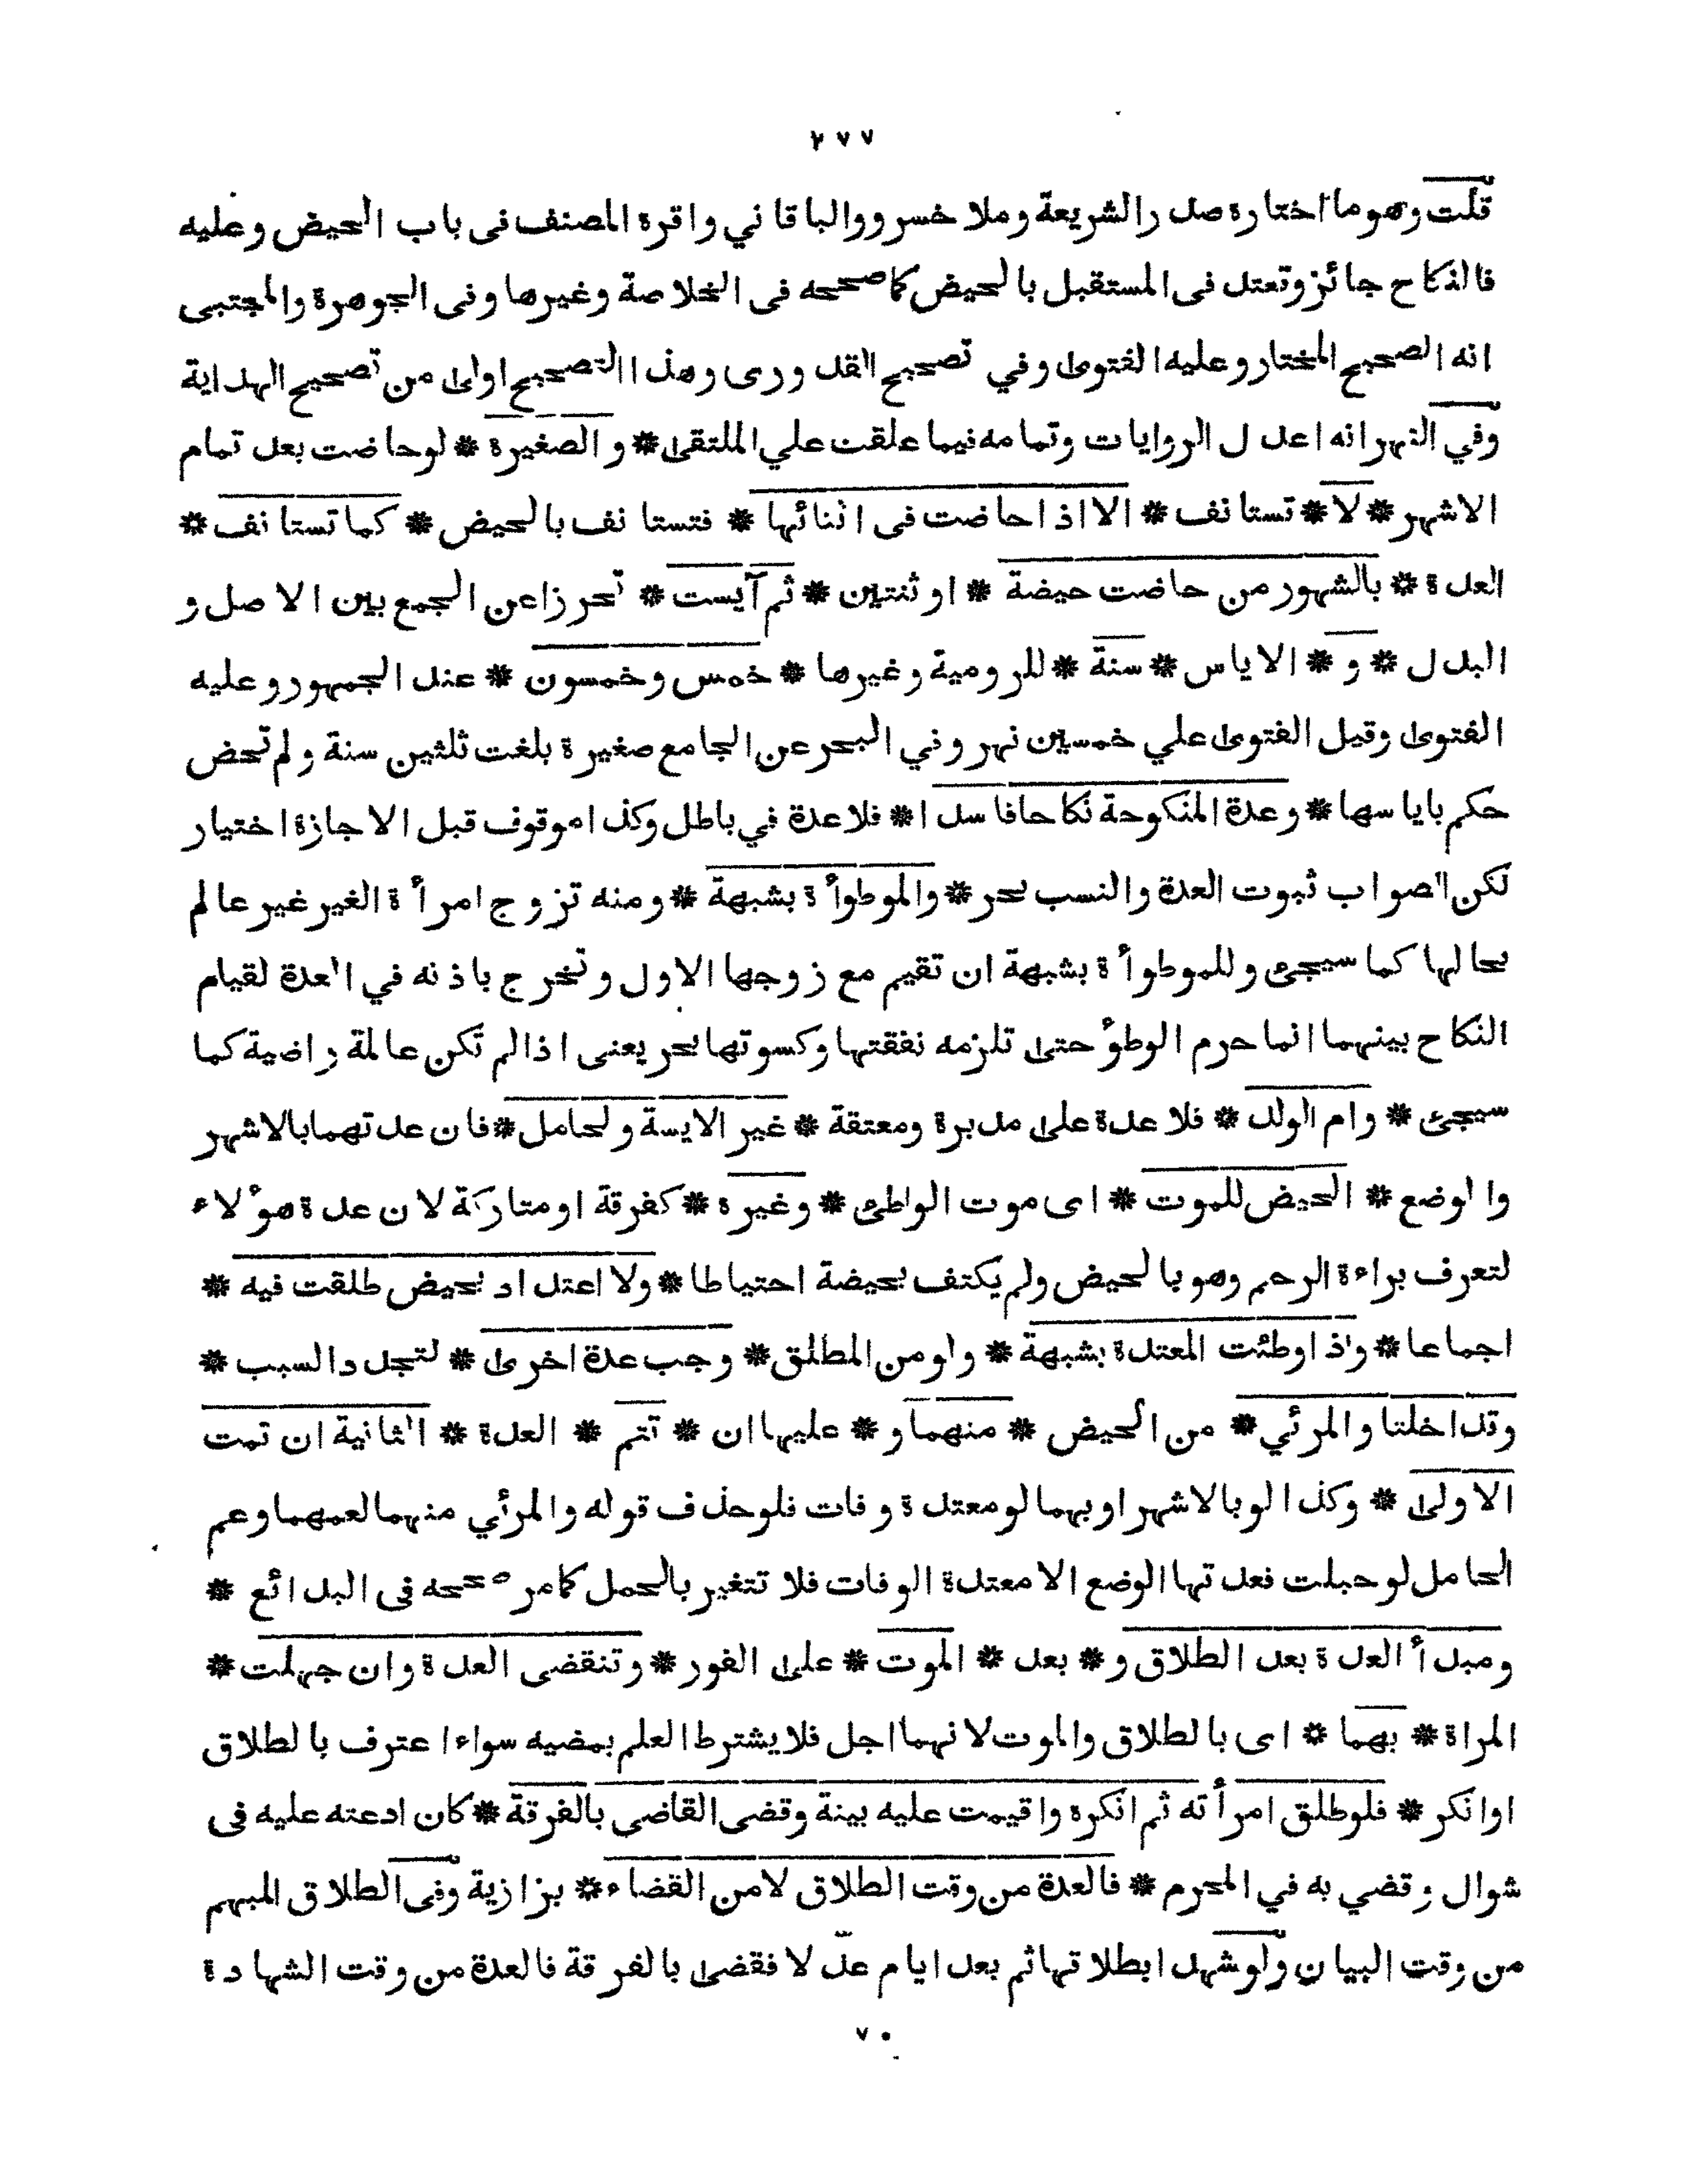 ٢٧٧
قلت وهو ما اختاره صدر الشريعة وملا خسرو والباقاني واقره المصنف في باب الحيض وعليه
فالنكاح جائز وتعتد في المستقبل بالحيض كما صححه في الخلاصة وغيرها وفي الجوهرة والمجتبى
انه الصحيح المختار وعليه الفتوى وفي تصحيح القدوري وهذا التصحيح اولى من تصحيح الهداية
وفي النهر انه اعدل الروايات وتمامه فيما علقت علي الملتقى * والصغيرة * لو حاضت بعد تمام
الاشهر * لا * تستانف * الا اذا حاضت في اثنائها * فتستانف بالحيض * كما تستانف *
العدة * بالشهور من حاضت حيضة * او ثنتين * ثم آيست * تحرزا عن الجمع بين الاصل و
البدل * و * الاياس * سنة * للرومية وغيرها * خمس وخمسون * عند الجمهور وعليه
الفتوى وقيل الفتوى علي خمسين نهر وفي البحر عن الجامع صغيرة بلغت ثلثين سنة ولم تحض
حكم باياسها * وعدة المنكوحة نكاحا فاسدا * فلا عدة في باطل وكذا موقوف قبل الاجازة اختيار
لكن الصواب ثبوت العدة والنسب بحر * والموطوأة بشبهة * ومنه تزوج امرأة الغير غير عالم
بحالها كما سيجئ وللموطوأة بشبهة ان تقيم مع زوجها الاول وتخرج باذنه في العدة لقيام
النكاح بينهما انما حرم الوطؤ حتى تلزمه نفقتها وكسوتها بحر يعنى اذا لم تكن عالمة راضية كما
سيجئ * وام الولد * فلا عدة على مدبرة ومعتقة * غير الايسة ولحامل * فان عدتهما بالاشهر
والوضع * الحيض للموت * اى موت الواطئ * وغيره * كفرقة او متاركة لان عدة هؤلاء
لتعرف براءة الرحم وهو بالحيض ولم يكتف بحيضة احتياطا * ولا اعتداد بحيض طلقت فيه *
اجماعا * واذا وطئت المعتدة بشبهة * ولو من المطلق * وجب عدة اخرى * لتجدد السبب *
وتداخلتا والمرئي * من الحيض * منهما و * عليها ان * تتم * العدة * الثانية ان تمت
الاولى * وكذا لو بالاشهر او بهما لو معتدة وفات فلو حذف قوله والمرئي منهما لعمهما وعم
الحامل لو حبلت فعدتها الوضع الا معتدة الوفات فلا تتغير بالحمل كما مر صححه في البدائع *
ومبدأ العدة بعد الطلاق و * بعد * الموت * على الفور * وتنقضى العدة وان جهلت *
المراة * بهما * اى بالطلاق والموت لانهما اجل فلا يشترط العلم بمضيه سواء اعترف بالطلاق
او انكر * فلو طلق امرأته ثم انكره واقيمت عليه بينة وقضى القاضى بالفرقة * كان ادعته عليه في
شوال وقضي به في المحرم * فالعدة من وقت الطلاق لا من القضاء * بزازية وفي الطلاق المبهم
من وقت البيان ولو شهدا بطلاقها ثم بعد ايام عدلا فقضى بالفرقة فالعدة من وقت الشهادة
٧٠